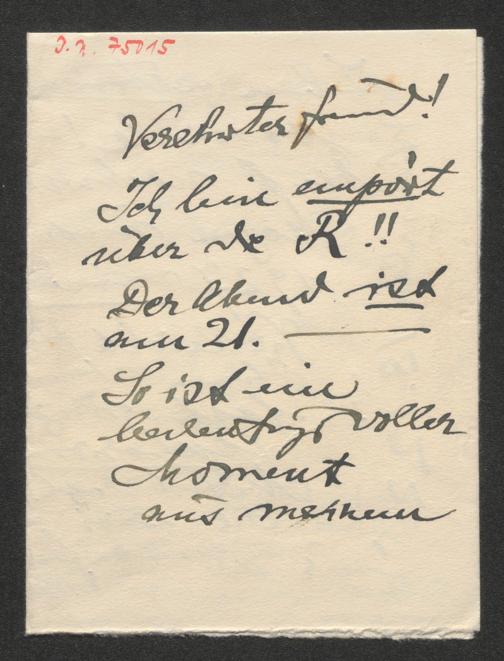 J. N. 75015
Verehrter Freund!
Ich bin empört
über die R!!
Der Abend ist
am 21.
So ist ein
bedeutungsvoller
Moment
aus meinem